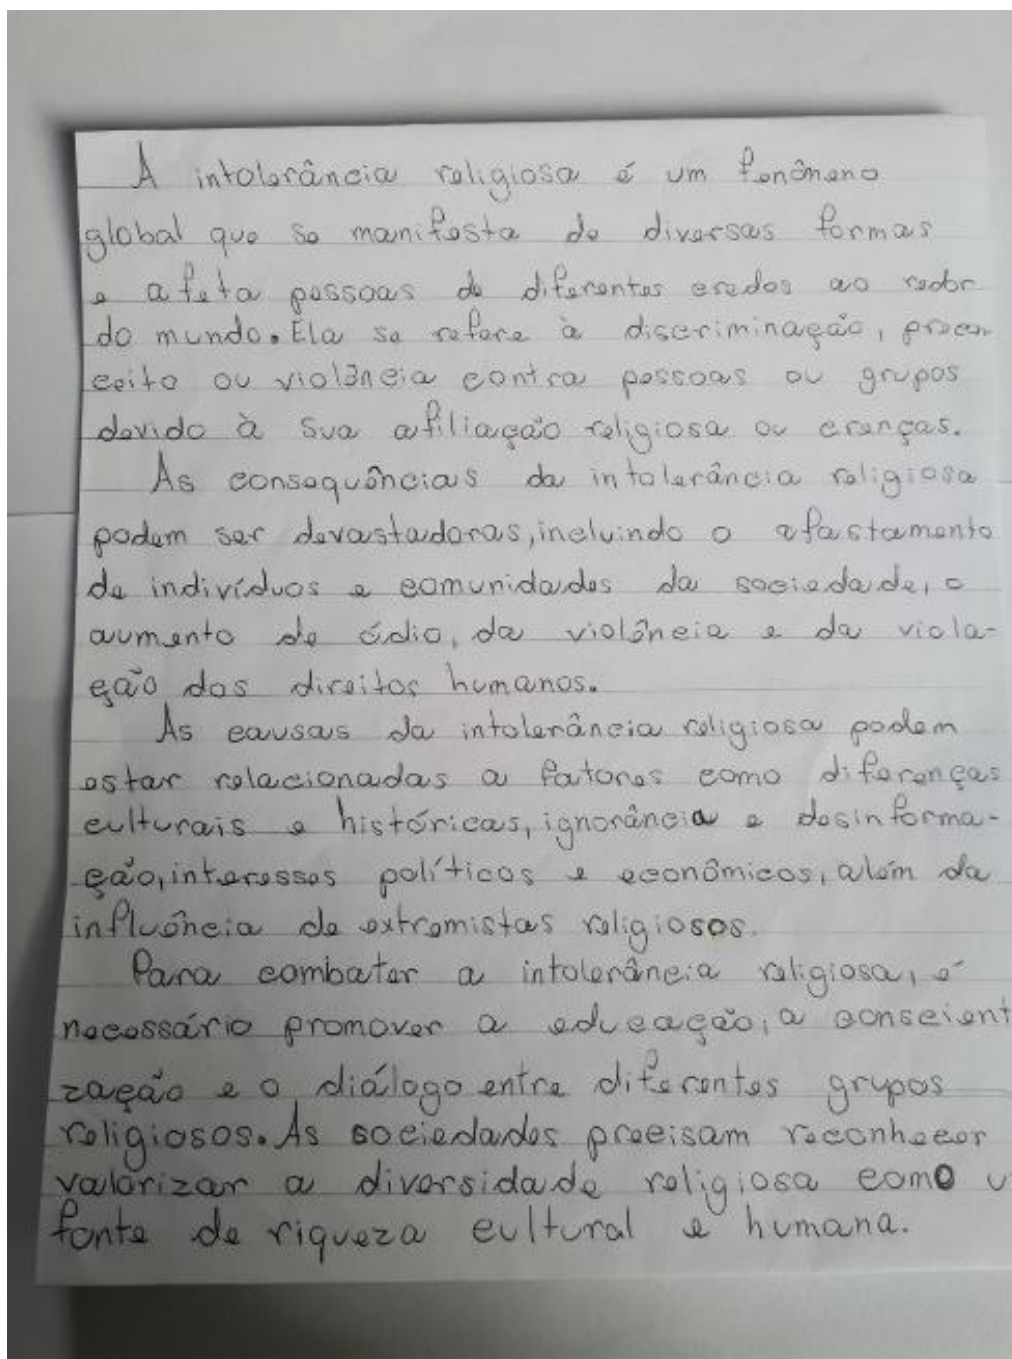 A intolerância religiosa é um fenômeno
global que se manifesta de diversas formas
e afeta pessoas de diferentes credos ao redor
do mundo. Ela se refere à discriminação, precon
ceito ou violência contra pessoas ou grupos
devido à sua afiliação religiosa ou crenças.
As consequências da intolerância religiosa
podem ser devastadoras, incluindo o afastamento
de indivíduos e comunidades da sociedade, o
aumento do ódio, da violência e da viola-
ção dos direitos humanos.
As causas da intolerância religiosa podem
estar relacionadas a fatores como diferenças
culturais e históricas, ignorância e desinforma-
ção, interesses políticos e econômicos, além da
influência de extremistas religiosos.
Para combater a intolerância religiosa, é
necessário promover a educação, a conscient
zação e o diálogo entre diferentes grupos
religiosos. As sociedades precisam reconhecer
valorizar a diversidade religiosa como u
fonte de riqueza cultural e humana.